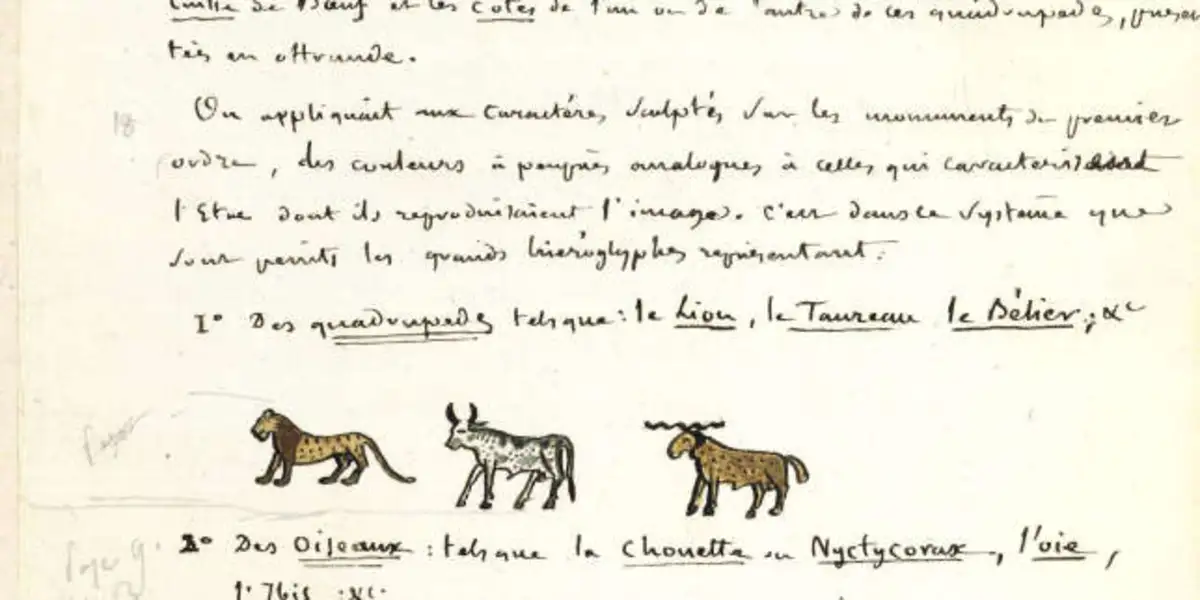 Cuisse de Bœuf et les Cotes de l'un ou de l'autre de ces quadrupedes, présen
tées en offrande.
18
On appliquait aux caractères, sculptés sur les monuments du premier
ordre, des couleurs à peuprès analogues à celles qui caractérisaient
l'Etre dont ils reproduisaient l'image. C'est dans ce systême que
sont peints les grands hiéroglyphes représentant:
1° Des quadrupedes tels que: le Lion, le Taureau le Bélier; &c
2° Des Oiseaux: tels que la Chouette ou Nyctycorax, l'oie,
l'Ibis &c.